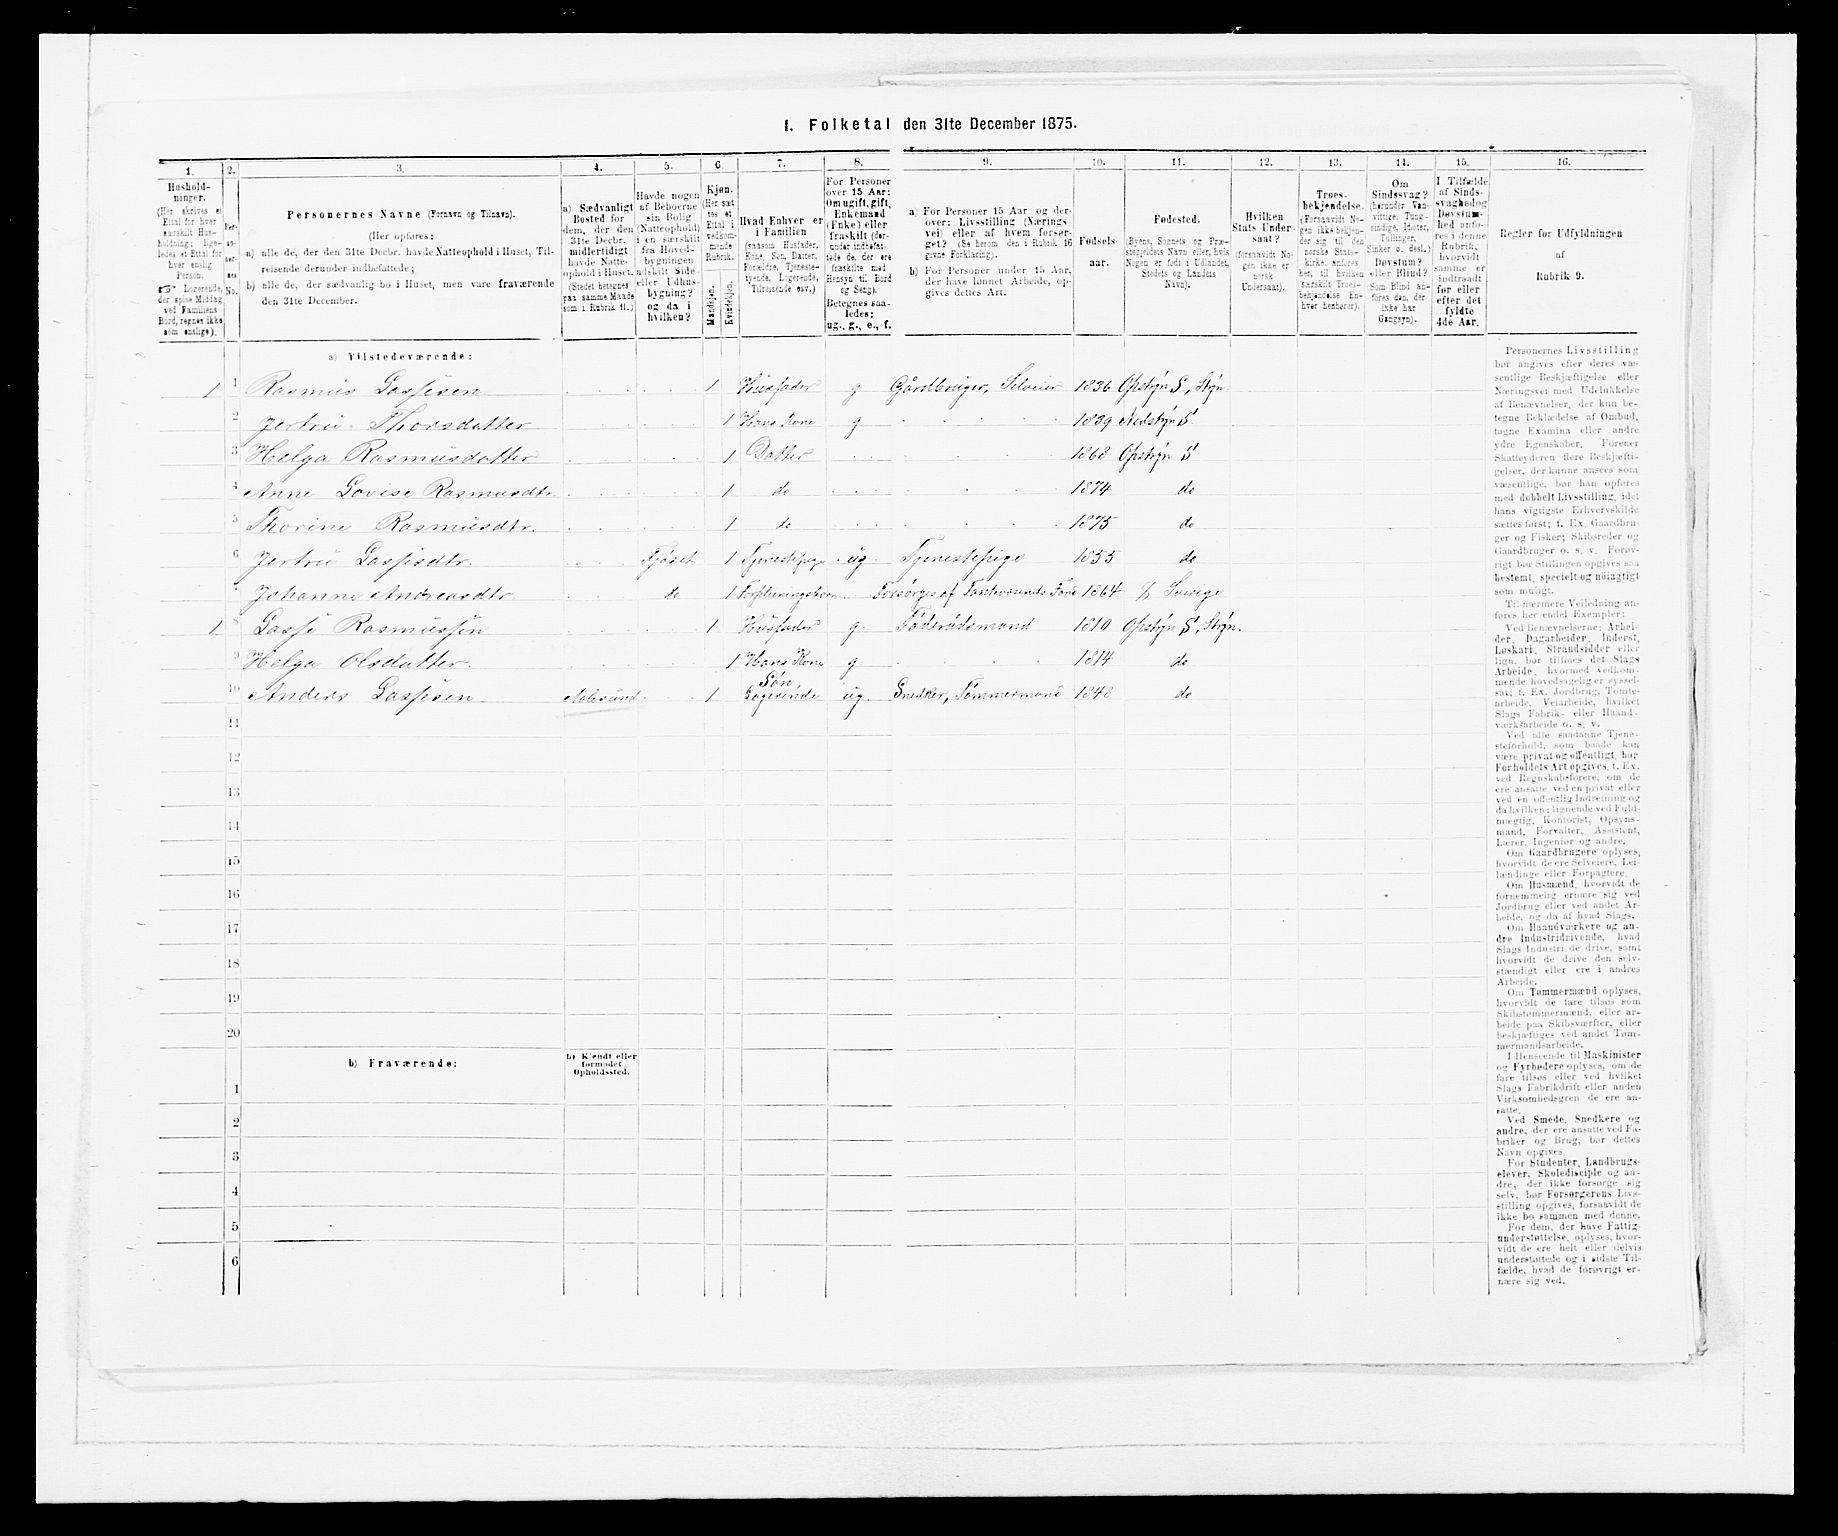 I. Folketal den 31te December 1875.
1. 2. 3. 4. 5. 6. 7. 8. 9. 10. 11. 12. 13. 14. 15. 16.
Hushold-
ninger.
(Her skrives et
Ettal for hver
særskilt Hus-
holdning; lige-
ledes et Ettal for
hver enslig
Person.
☞ Logerende,
der spise Middag
ved Familiens
Bord, regnes ikke
som enslige).
Per-
so-
ner-
nes
No.
Personernes Navne (Fornavn og Tilnavn).
(Her opføres:
a) alle de, der den 31te Decbr. havde Natteophold i Huset, Til-
reisende derunder indbefattede;
b) alle de, der sædvanlig bo i Huset, men vare fraværende
den 31te December.
a) Sædvanligt
Bosted for
dem, der den
31te Decbr.
midlertidigt
havde Natte-
ophold i Huset.
(Stedet betegnes
paa samme Maade
som i Rubrik 11.)
Havde nogen
af Beboerne
sin Bolig
(Natteophold)
i en særskilt
fra Hoved-
bygningen
adskilt Side-
eller Udhus-
bygning?
og da i
hvilken?
Kjøn.
(Her sæt-
tes et
Ettal i
vedkom-
mende
Rubrik.
Mandkjøn.
Kvindekjøn.
Hvad Enhver er
i Familien
(saasom Husfader,
Kone, Søn, Datter,
Forældre, Tjeneste-
tyende, Logerende,
Tilreisende osv.)
For Personer
over 15 Aar:
Om ugift, gift,
Enkemand
(Enke) eller
fraskilt (der-
under indbefat-
tede de, der ere
fraskilte med
Hensyn til Bord
og Seng).
Betegnes saa-
ledes:
ug., g., e., f.
a) For Personer 15 Aar og der-
over: Livsstilling (Nærings-
vei) eller af hvem forsør-
get? (Se herom den i Rubrik 16
givne Forklaring).
b) For Personer under 15 Aar,
der have lønnet Arbeide, op-
gives dettes Art.
Fødsels-
aar.
Fødested.
(Byens, Sognets og Præ-
stegjeldets Navn eller, hvis
Nogen er født i Udlandet,
Stedets og Landets
Navn).
Hvilken
Stats Under-
saat?
(forsaavidt No-
gen ikke er
norsk
Undersaat).
Troes-
bekjendelse.
(Forsaavidt No-
gen ikke bekjen-
der sig til den
norske Stats-
kirke, anføres
her, til hvilken
særskilt Troes-
bekjendelse En-
hver henhører).
Om
Sindssvag?
(herunder Van-
vittige, Tung-
sindige, Idioter,
Tullinger,
Sinker o. desl.)
Døvstum?
eller Blind?
(Som Blind an-
føres den, der
ikke har
Gangsyn).
I Tilfælde
af Sinds-
svaghed og
Døvstum-
hed anfø-
res i denne
Rubrik,
hvorvidt
samme er
indtraadt
før eller
efter det
fyldte
4de Aar.
Regler for Udfyldningen
af
Rubrik 9.
a) Tilstedeværende:
1 1 Rasmus Lassesen 1 Husfader g Gårdbruger, Selveier 1836 Opstryn S, Stryn
2 Jertru Thorsdatter 1 Hans Kone g 1839 Nedstryn S
3 Helga Rasmusdatter 1 Datter 1868 Opstryn S
4 Anne Lovise Rasmusdtr. 1 do 1874 do
5 Thorine Rasmusdtr. 1 do 1875 do
6 Jertru Lassesdtr. Fjöset 1 Tjenestepige ug Tjenestepige 1855 do
7 Johanne Andreasdtr do 1 Forsörges af Fantevæsnets Fond 1864 Sverige
1 8 Lasse Rasmussen 1 Husfader g Föderådsmand 1810 Opstryn S, Stryn.
9 Helga Olsdatter 1 Hans Kone g 1814 do
10 Anders Lassesen Aalesund 1 Sön Logerende ug Snedker, Tömmermand 1848 do
11
12
13
14
15
16
17
18
19
20
b) Fraværende:
b) Kjendt eller
formodet
Opholdssted.
1
2
3
4
5
6
Personernes Livsstilling
bør angives efter deres væ-
sentlige Beskjæftigelse eller
Næringsvei med Udelukkelse
af Benævnelser, der kun be-
tegne Beklædelse af Ombud,
tagne Examina eller andre
ydre Egenskaber. Forener
Skatteyderen flere Beskjæfti-
gelser, der kunne ansees som
væsentlige, bør han opføres
med dobbelt Livsstilling, idet
hans vigtigste Erhvervskilde
sættes først; f. Ex. Gaardbru-
ger og Fisker; Skibsreder og
Gaardbruger o. s. v. Forøv-
rigt bør Stillingen opgives saa
bestemt, specielt og nøiagtigt
som muligt.
Til nærmere Veiledning an-
føres her endel Exempler:
Ved Benævnelserne: Arbei-
der, Dagarbeider, Inderst,
Løskarl, Strandsidder eller
lign. bør tilføies det Slags
Arbeide, hvormed vedkom-
mende hovedsagelig er syssel-
sat; f. Ex. Jordbrug, Tomte-
arbeide, Veiarbeide, hvilket
Slags Fabrik- eller Haand-
værksarbeide o. s. v.
Ved alle saadanne Tjene-
steforhold, som baade kan
være privat og offentligt, bør
Forholdets Art opgives, t. Ex.
ved Regnskabsførere, om de
ere ansatte ved en privat eller
ved en offentlig Indretning og
da hvilken; lignende ved Fuld-
mægtig, Kontorist, Opsyns-
mand, Forvalter, Assistent,
Lærer, Ingeniør og andre.
Om Gaardbrugere oplyses,
hvorvidt de ere Selveiere, Lei-
lændinge eller Forpagtere.
Om Husmænd, hvorvidt de
fornemmelig ernære sig ved
Jordbrug eller ved andet Ar-
beide, og da af hvad Slags.
Om Haandværkere og an-
dre Industridrivende, hvad
Slags Industri de drive, samt
hvorvidt de drive den selv-
stændigt eller ere i andres
Arbeide.
Om Tømmermænd oplyses,
hvorvidt de fare tilsøs som
Skibstømmermænd, eller ar-
beide paa Skibsværfter, eller
beskjæftiges ved andet Tøm-
mermandsarbeide.
I Henseende til Maskinister
og Fyrbødere oplyses, om de
fare tilsøs eller ved hvilket
Slags Fabrikdrift eller anden
Virksomhedsgren de ere an-
satte.
Ved Smede, Snedkere og
andre, der ere ansatte ved Fa-
briker og Brug, bør dettes
Navn opgives.
For Studenter, Landbrugs-
elever, Skoledisciple og an-
dre, der ikke forsørge sig
selv, bør Forsørgerens Livs-
stilling opgives, forsaavidt de
ikke bo sammen med denne.
For dem, der have Fattig-
understøttelse, oplyses, hvor-
vidt de ere helt eller delvis
understøttede og i sidste Til-
fælde, hvad de forøvrigt er-
nære sig ved.